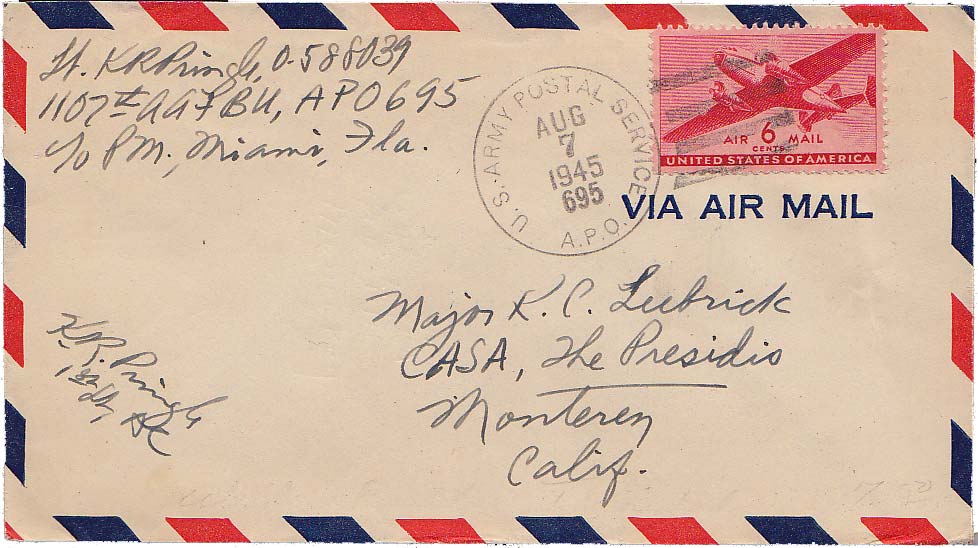 Lt. K R Pringle, O-588039
1107th AAFBU, APO 695
c/o PM, Miami, Fla.
U.S. ARMY POSTAL SERVICE
AUG
7
1945
695
A.P.O.
AIR 6 MAIL
CENTS
UNITED STATES OF AMERICA
VIA AIR MAIL
Major K. C. Leebrick
CASA, The Presidio
Monterey
Calif.
K.R. Pringle
1st Lt, AC